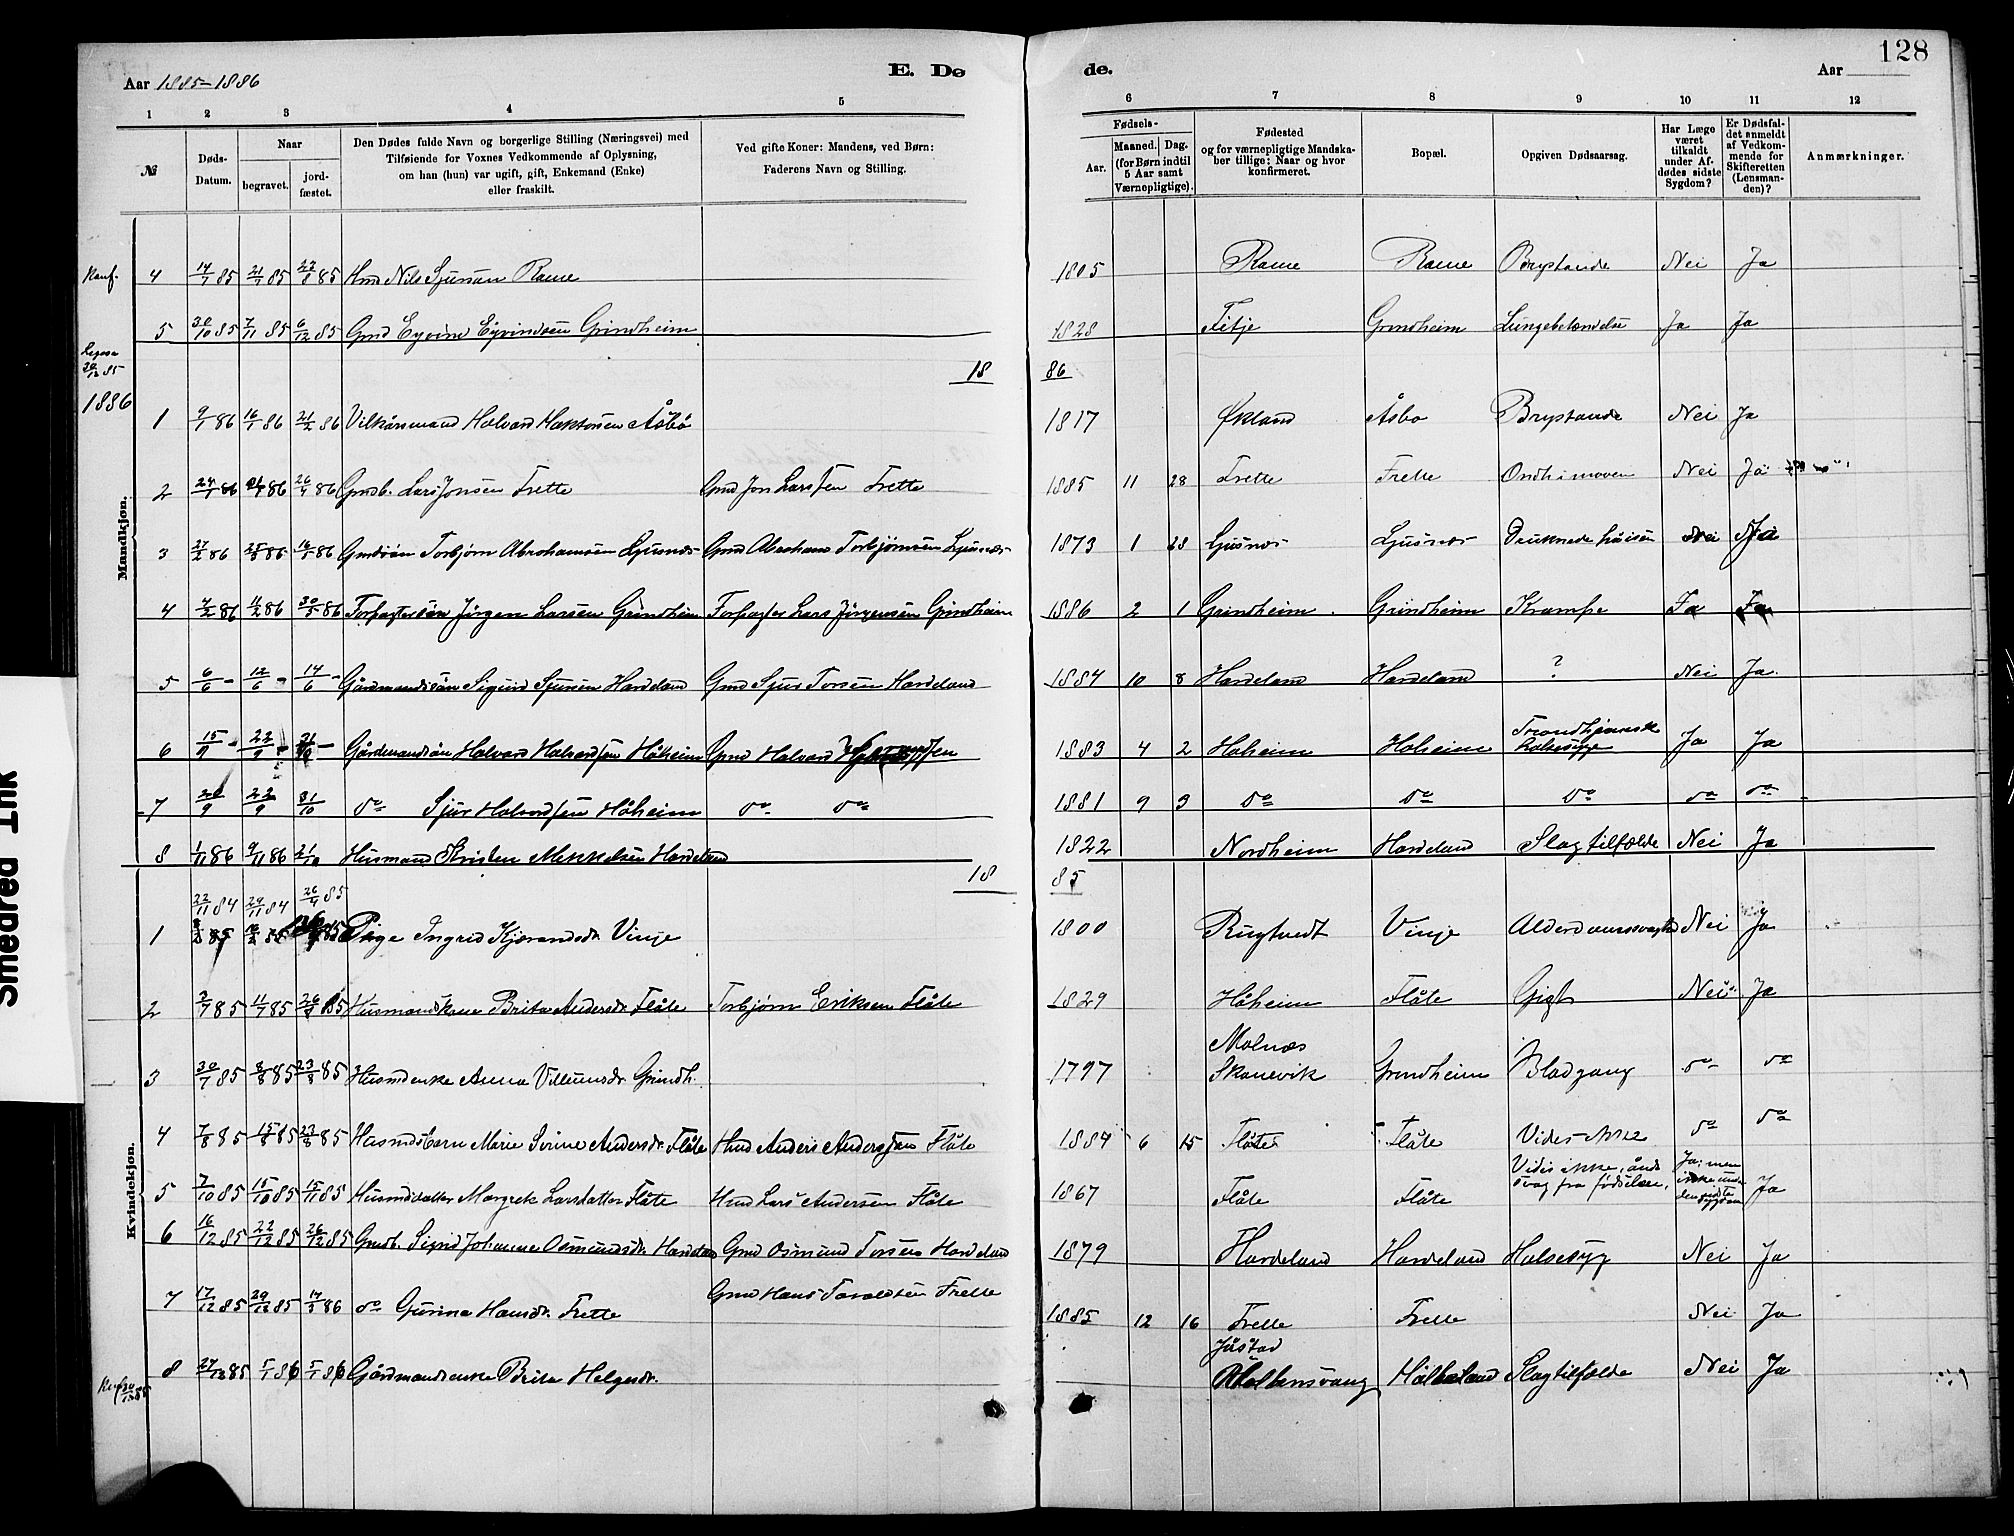 128
Aar 1885-1886
E. Dø
de.
Aar
1 2 3 4 5 6 7 8 9 10 11 12
№
Døds-Datum.
Naar
begravet.
jord-fæstet.
Den Dødes fulde Navn og borgerlige Stilling (Næringsvei) med
Tilføiende for Voxnes Vedkommende af Oplysning,
om han (hun) var ugift, gift, Enkemand (Enke)
eller fraskilt.
Ved gifte Koner: Mandens, ved Børn:
Faderens Navn og Stilling.
Fødsels-
Aar.
Maaned. Dag.
(for Børn indtil
5 Aar samt
Værnepligtige).
Fødested
og for værnepligtige Mandska-
ber tillige: Naar og hvor
konfirmeret.
Bopæl.
Opgiven Dødsaarsag.
Har Læge
været
tilkaldt
under Af-
dødes sidste
Sygdom?
Er Dødsfal-
det anmeldt
af Vedkom-
mende for
Skifteretten
(Lensman-
den)?
Anmærkninger.
Mandkjøn.
4 14/7 85 21/7 85 23/8 85 Hmd Nils Sjursøn Rame 1805 Rame Rame Brystonde Nei Ja
5 30/10 85 7/11 85 6/12 85 Gmd Eyvind Eyvindsen Grindheim 1828 Fitje Grindheim Lungebetændelse Ja Ja
20/12 85
18 86
1886
1 9/1 86 16/1 86 21/2 86 Vilkårsmand Halvard Asbø 1817 Økland Åsbo Brystonde Nei Ja
2 24/1 86 86 26/4 86 Gmdb. Lars Jonsen Frette Gmd Jon Larssen Frette 1885 11 28 Frette Frette Ondt i maven Nei Ja
3 27/2 86 86 16/5 86 Gmdsøn Torbjørn Abrahamsen Ljusnes Gmd Abraham Torbjørnsen Ljusnes 1873 1 28 Ljusnes Ljusnes Druknede Nei Ja
4 4/2 86 11/2 86 30/5 86 Forpagtersøn Jørgen Larsen Grindheim Forpagter Lars Jørgensen Grindheim 1886 2 1 Grindheim Grindheim Krampe Ja Ja
5 6/6 - 12/6 - 14/6 - Gårdmandssøn Sigurd Sjursen Hardeland Gmd Sjur Torsen Hardeland 1884 10 8 Hardeland Hardeland ? Nei Ja
6 15/9 - 22/9 - Gårdmandsøn Halvard Halvardsen Håheim Gmd Halvard 1883 4 2 Håheim Håheim Trondhjemsk halssyge Ja Ja
7 20/9 22/9 31/10 do Sjur Halvordsen Håheim do do 1881 9 3 do do do do do
8 1/11 86 9/11 86 Husmand Kristen Mikkelsen Hardeland 1822 Nordheim Hardeland Slagtilfælde Nei Ja
18 85
Kvindekjøn.
22/11 84 29/11 84 26/4 85
1 Pige Ingrid Kjørandsdr. Vinje 1800 Rugtvedt Vinje Alderdomssvaghed Nei Ja
2 3/7 85 11/7 85 Husmandskone Brita Andersdr. Flåte Torbjørn Eriksen Flåte 1829 Håheim Flåte Gigt Nei Ja
3 30/7 85 8/8 85 23/8 85 Husmdenke Anna Villumsdr. Grindh. 1797 Molnæs Skonevik Grindheim Blodgang do do
4 7/8 85 15/8 85 23/8 85 Husmdsbarn Marie Sørine Andersdr. Flåte Hmd Anders Anderssen Flåte 1884 6 15 Flåte Flåte Vides ikke do do
5 7/10 85 15/10 85 15/11 85 Husmddatter Margrete Larsdatter Flåte Hmd Lars Andersen Flåte 1867 Flåte Flåte Vides ikke, åndssvag fra fødselen. Ja; men ikke under den sidste sygdom Ja
6 16/12 85 22/12 85 26/12 85 Gmdb. Sigrid Johanne Osmundsdr. Hardeland Gmd Osmund Torsen Hardeland 1879 Hardeland Hardeland Halssyg Nei Ja
7 17/12 85 29/12 85 14/3 86 do Gurina Hansdr. Frette Gmd Hans Taraldsen Frette 1885 12 16 Frette Frette Nei Ja
8 27/12 85 5/1 86 5/1 86 Gårdmandsenke Brita Helgesdr. Jåstad Ullensvang Slagtilfælde Nei Ja
Smedred Ink